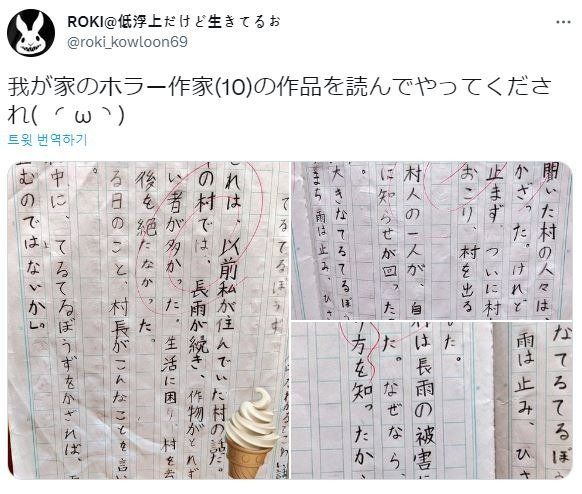 ROKI@低浮上だけど生きてるお
@roki_kowloon69
我が家のホラー作家(10)の作品を読んでやってくださ
れ( ◜ ω ◝ )
트윗 번역하기
てるてるぼうず
れは、以前私が住んでいた村の話だ。
の村では、長雨が続き、作物がとれず
い者が多かった。生活に困り、村を去
後を絶たなかった。
る日のこと、村長がこんなことを言い
た。
中に、てるてるぼうずをかざれば、
むのではないか」。
聞いた村の人々は、
かざった。けれど
止まず、ついに村
おこり、村を出る
村人の一人が、自
に知らせが回った
大きなてるてるぼう
まち雨は止み、ひさ
なてるてるぼ
雨は止み、ひさ
た。
は長雨の被害に
た。なぜなら、
方を知ったか